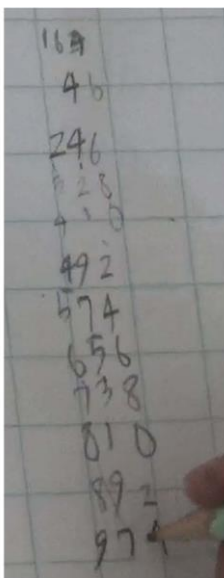 164
46
246
328
410
492
574
656
738
810
892
974